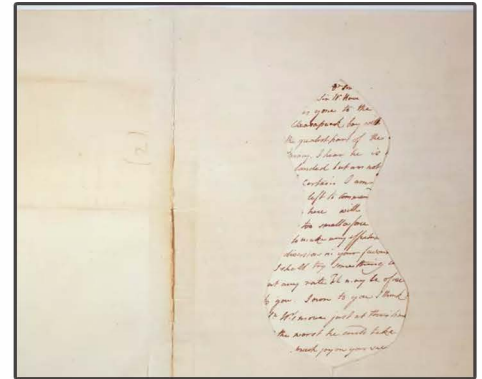 (2)
Sir W. Howe
is gone to the
Cheasapeak bay with
the greatest part of the
army. I hear he is
landed but am not
certain. I am
left to command
here with
too small a force
to make any effectual
diversion in your favour
I shall try something
at any rate. It may be of use
to you. I own to you I think
Sr W's move just at this time
the worst he could take
much joy on your